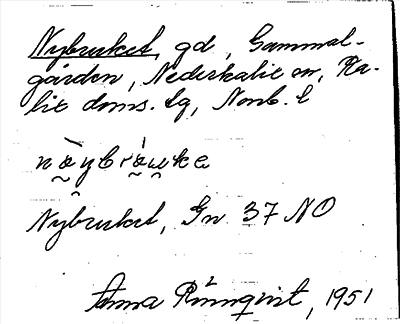 Nybruket, gd, Gammal-
gården, Nederkalix sn, Ka-
lix doms. tg, Norrb. l
Nybruket, Gn 37 NO
Anna Rönnqvist, 1951